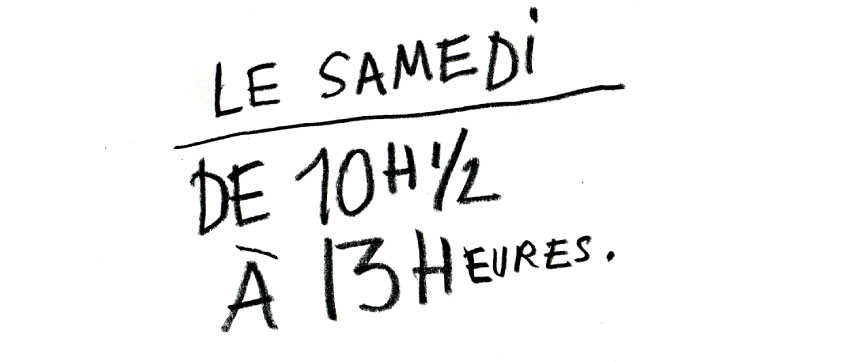 LE SAMEDi
DE 10H 1/2
À 13 HEURES.